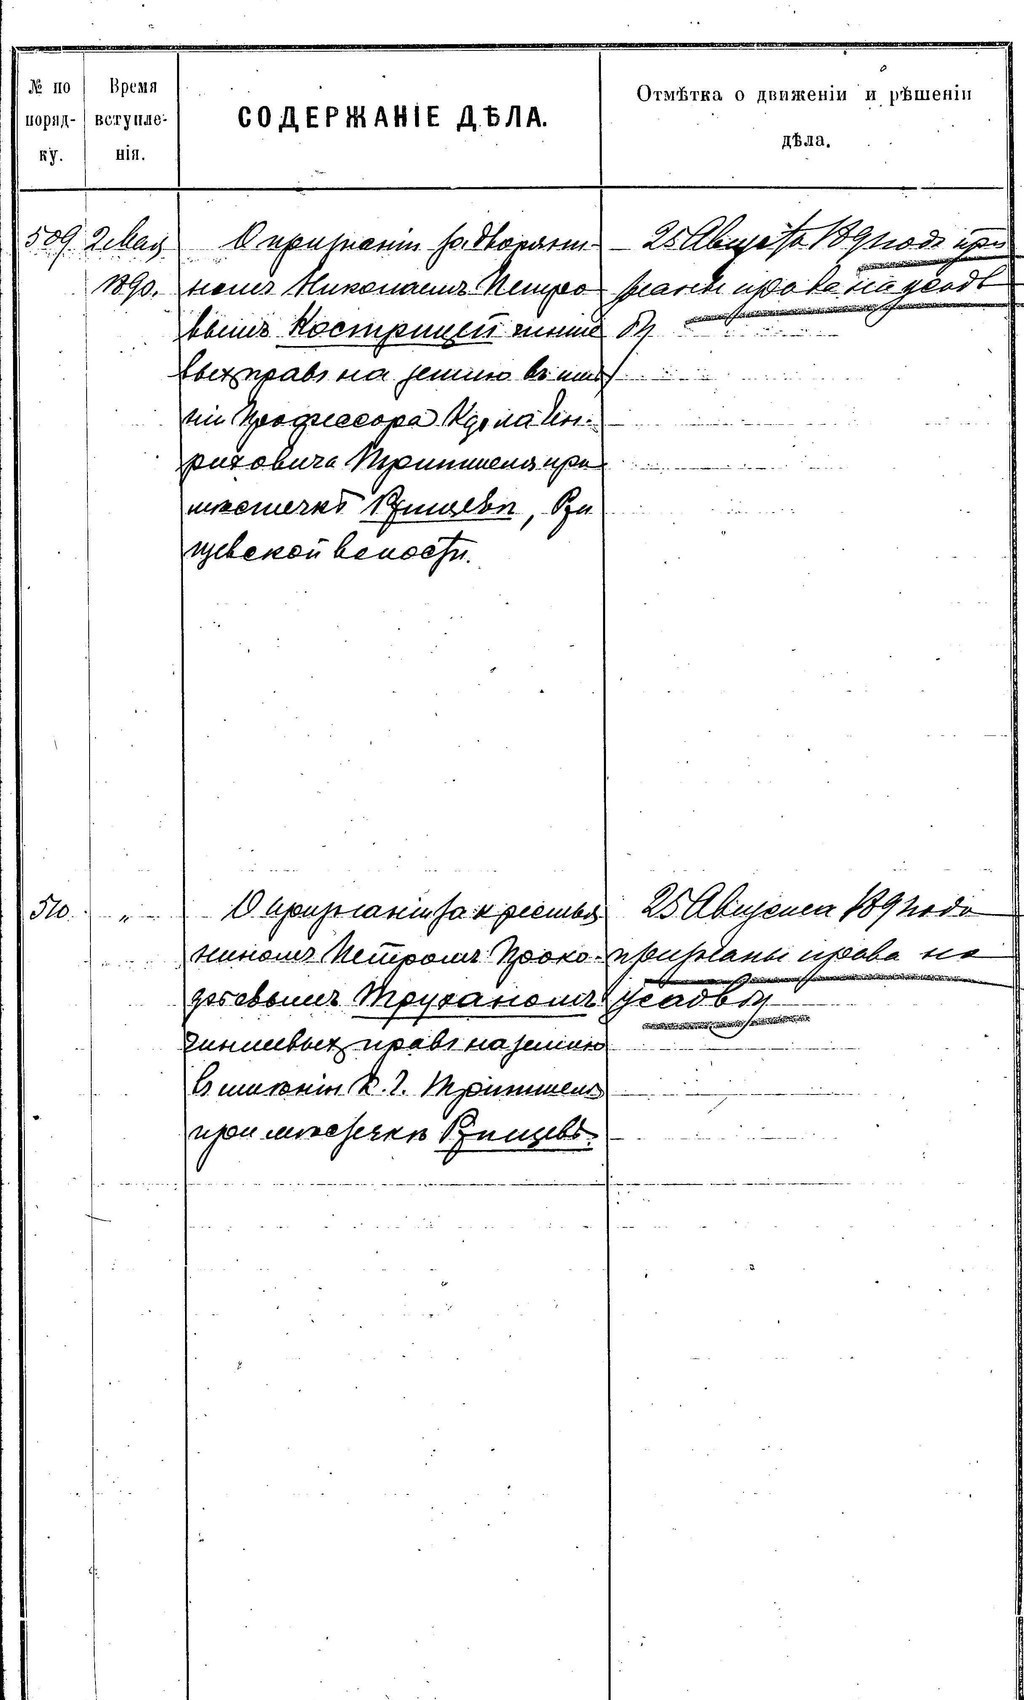 № по
поряд-
ку.
Время
вступле-
нія.
СОДЕРЖАНІЕ ДѢЛА.
Отмѣтка о движеніи и рѣшеніи
дѣла.
509. 2 Мая
1890.
О признаніи за дворяни-
номъ Николаемъ Петро
вымъ Кострицей чинше
выхъ правъ на землю въ имѣ
ніи Профессора Карла Ген-
риховича Тритшеля при
мѣстечкѣ Ржищевѣ, Ржи
щевской волости.
25 Августа 1891 года при
знаны права на усадь
бу
510. "
О признаніи за крестья
ниномъ Петромъ Проко-
Труханомъ
чиншевыхъ правъ на землю
въ имѣніи К. Г. Тритшеля
при мѣстечкѣ Ржищевѣ.
25 Августа 1891 года
признаны права на
усадьбу